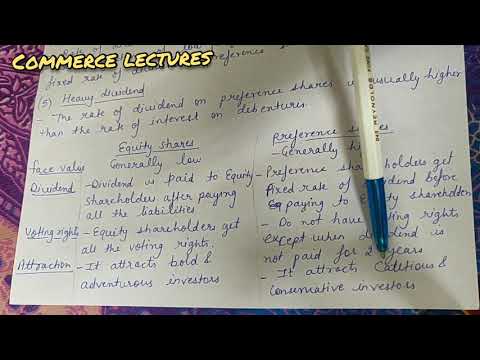 COMMERCE LECTURES
fixed rate of
(5) Heavy Dividend
- The rate of dividend on preference shares is usually higher
than the rate of interest on debentures.
Equity shares
Preference
face value
Generally low
- Generally
Dividend
- Dividend is paid to Equity
shareholders after paying
all the liabilities.
- Preference shareholders get
fixed rate of dividend before
paying to Equity shareholders
Voting rights
- Equity shareholders get
all the voting rights.
- Do not have voting rights
except when dividend is
not paid for 2 years
Attraction
- It attracts bold &
adventurous investors
- It attracts Cautious &
Conservative investors
REYNOLDS